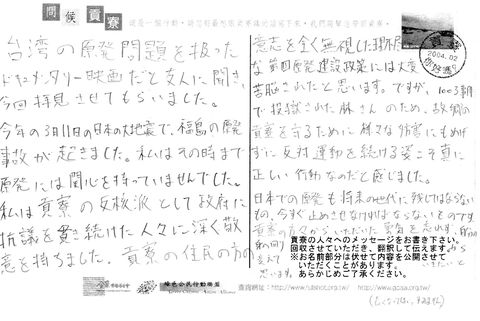 問候貢寮
台湾の原発問題を扱った
ドキュメンタリー映画だと友人に聞き、
今回拝見させてもらいました。
今年の3月11日の日本の大地震で、福島の原発
事故が起きました。私はその時まで
原発には関心を持っていませんでした。
私は貢寮の反核派として政府に
抗議を貫き続けた人々に深く敬
意を持ちました。貢寮の住民の方の
意志を全く無視した理不尽
な第四原発建設政策には大変
苦悩されたと思います。ですが、1003事件
で投獄された林さんのため、故郷の
貢寮を守るために様々な妨害にもめげ
ずに反対運動を続ける姿こそ真に
正しい行動なのだと感じました。
日本での原発も将来の世代に残してはならない
もの、今すぐ止めさせなければならないものです。
貢寮の方々からいただいた勇気を
貢寮の人々へのメッセージをお書き下さい。
回収させていただき、翻訳して伝えます。
※お名前部分は伏せて内容を公開させて
いただくことがあります。
あらかじめご了承ください。
思います。
2004.02
綠色公民行動聯盟
Green Citizens' Action Alliance
查詢網址:http://www.rubshot.org.tw/ http://www.gcaa.org.tw/